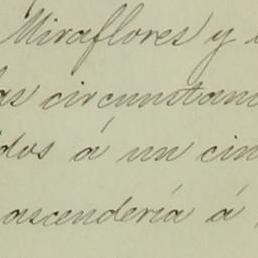 Miraflores y
as circunstanc
dos á un cin
ascendería á